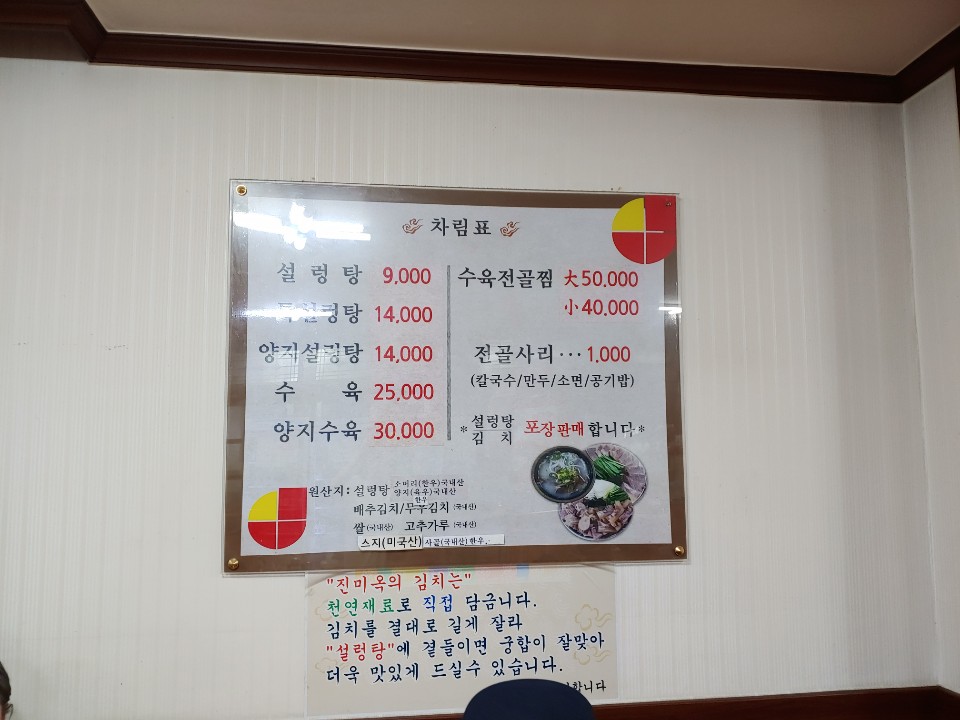 차림표
설렁탕 9,000
특설렁탕 14,000
양지설렁탕 14,000
수육 25,000
양지수육 30,000
수육전골찜 大50,000
小40,000
전골사리···1,000
(칼국수/만두/소면/공기밥)
*설렁탕 김치 포장판매합니다*
원산지: 설렁탕 소머리(한우)국내산
양지(육우)국내산
한우
배추김치/무우김치 (국내산)
쌀(국내산) 고추가루 (국내산)
스지(미국산) 사골(국내산)한우.
"진미옥의 김치는"
천연재료로 직접 담금니다.
김치를 결대로 길게 잘라
"설렁탕"에 곁들이면 궁합이 잘맞아
더욱 맛있게 드실수 있습니다.